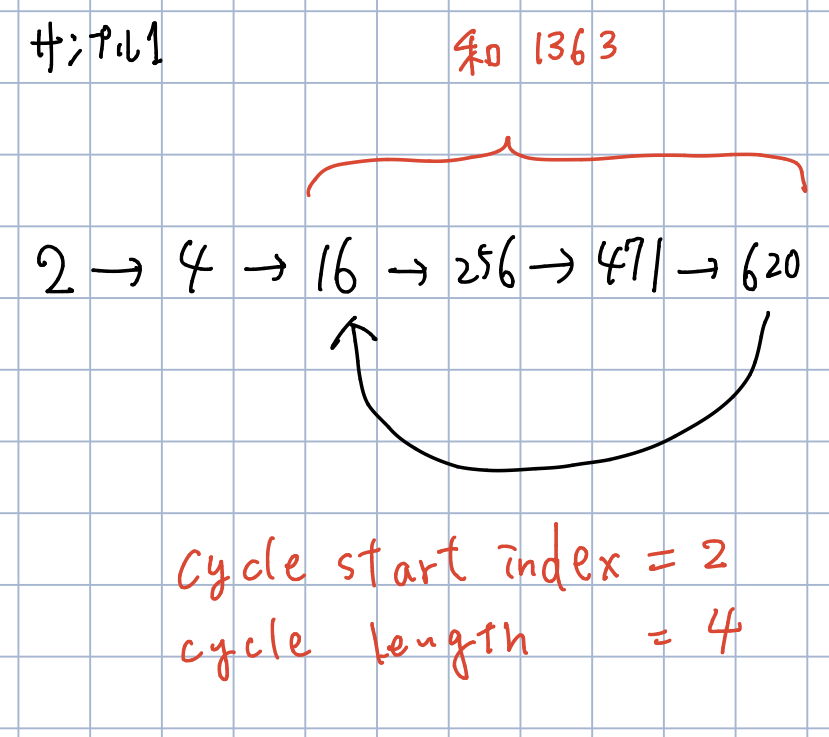 サンプル1
和 1363
2 → 4 → 16 → 256 → 471 → 620
cycle start index = 2
cycle length = 4